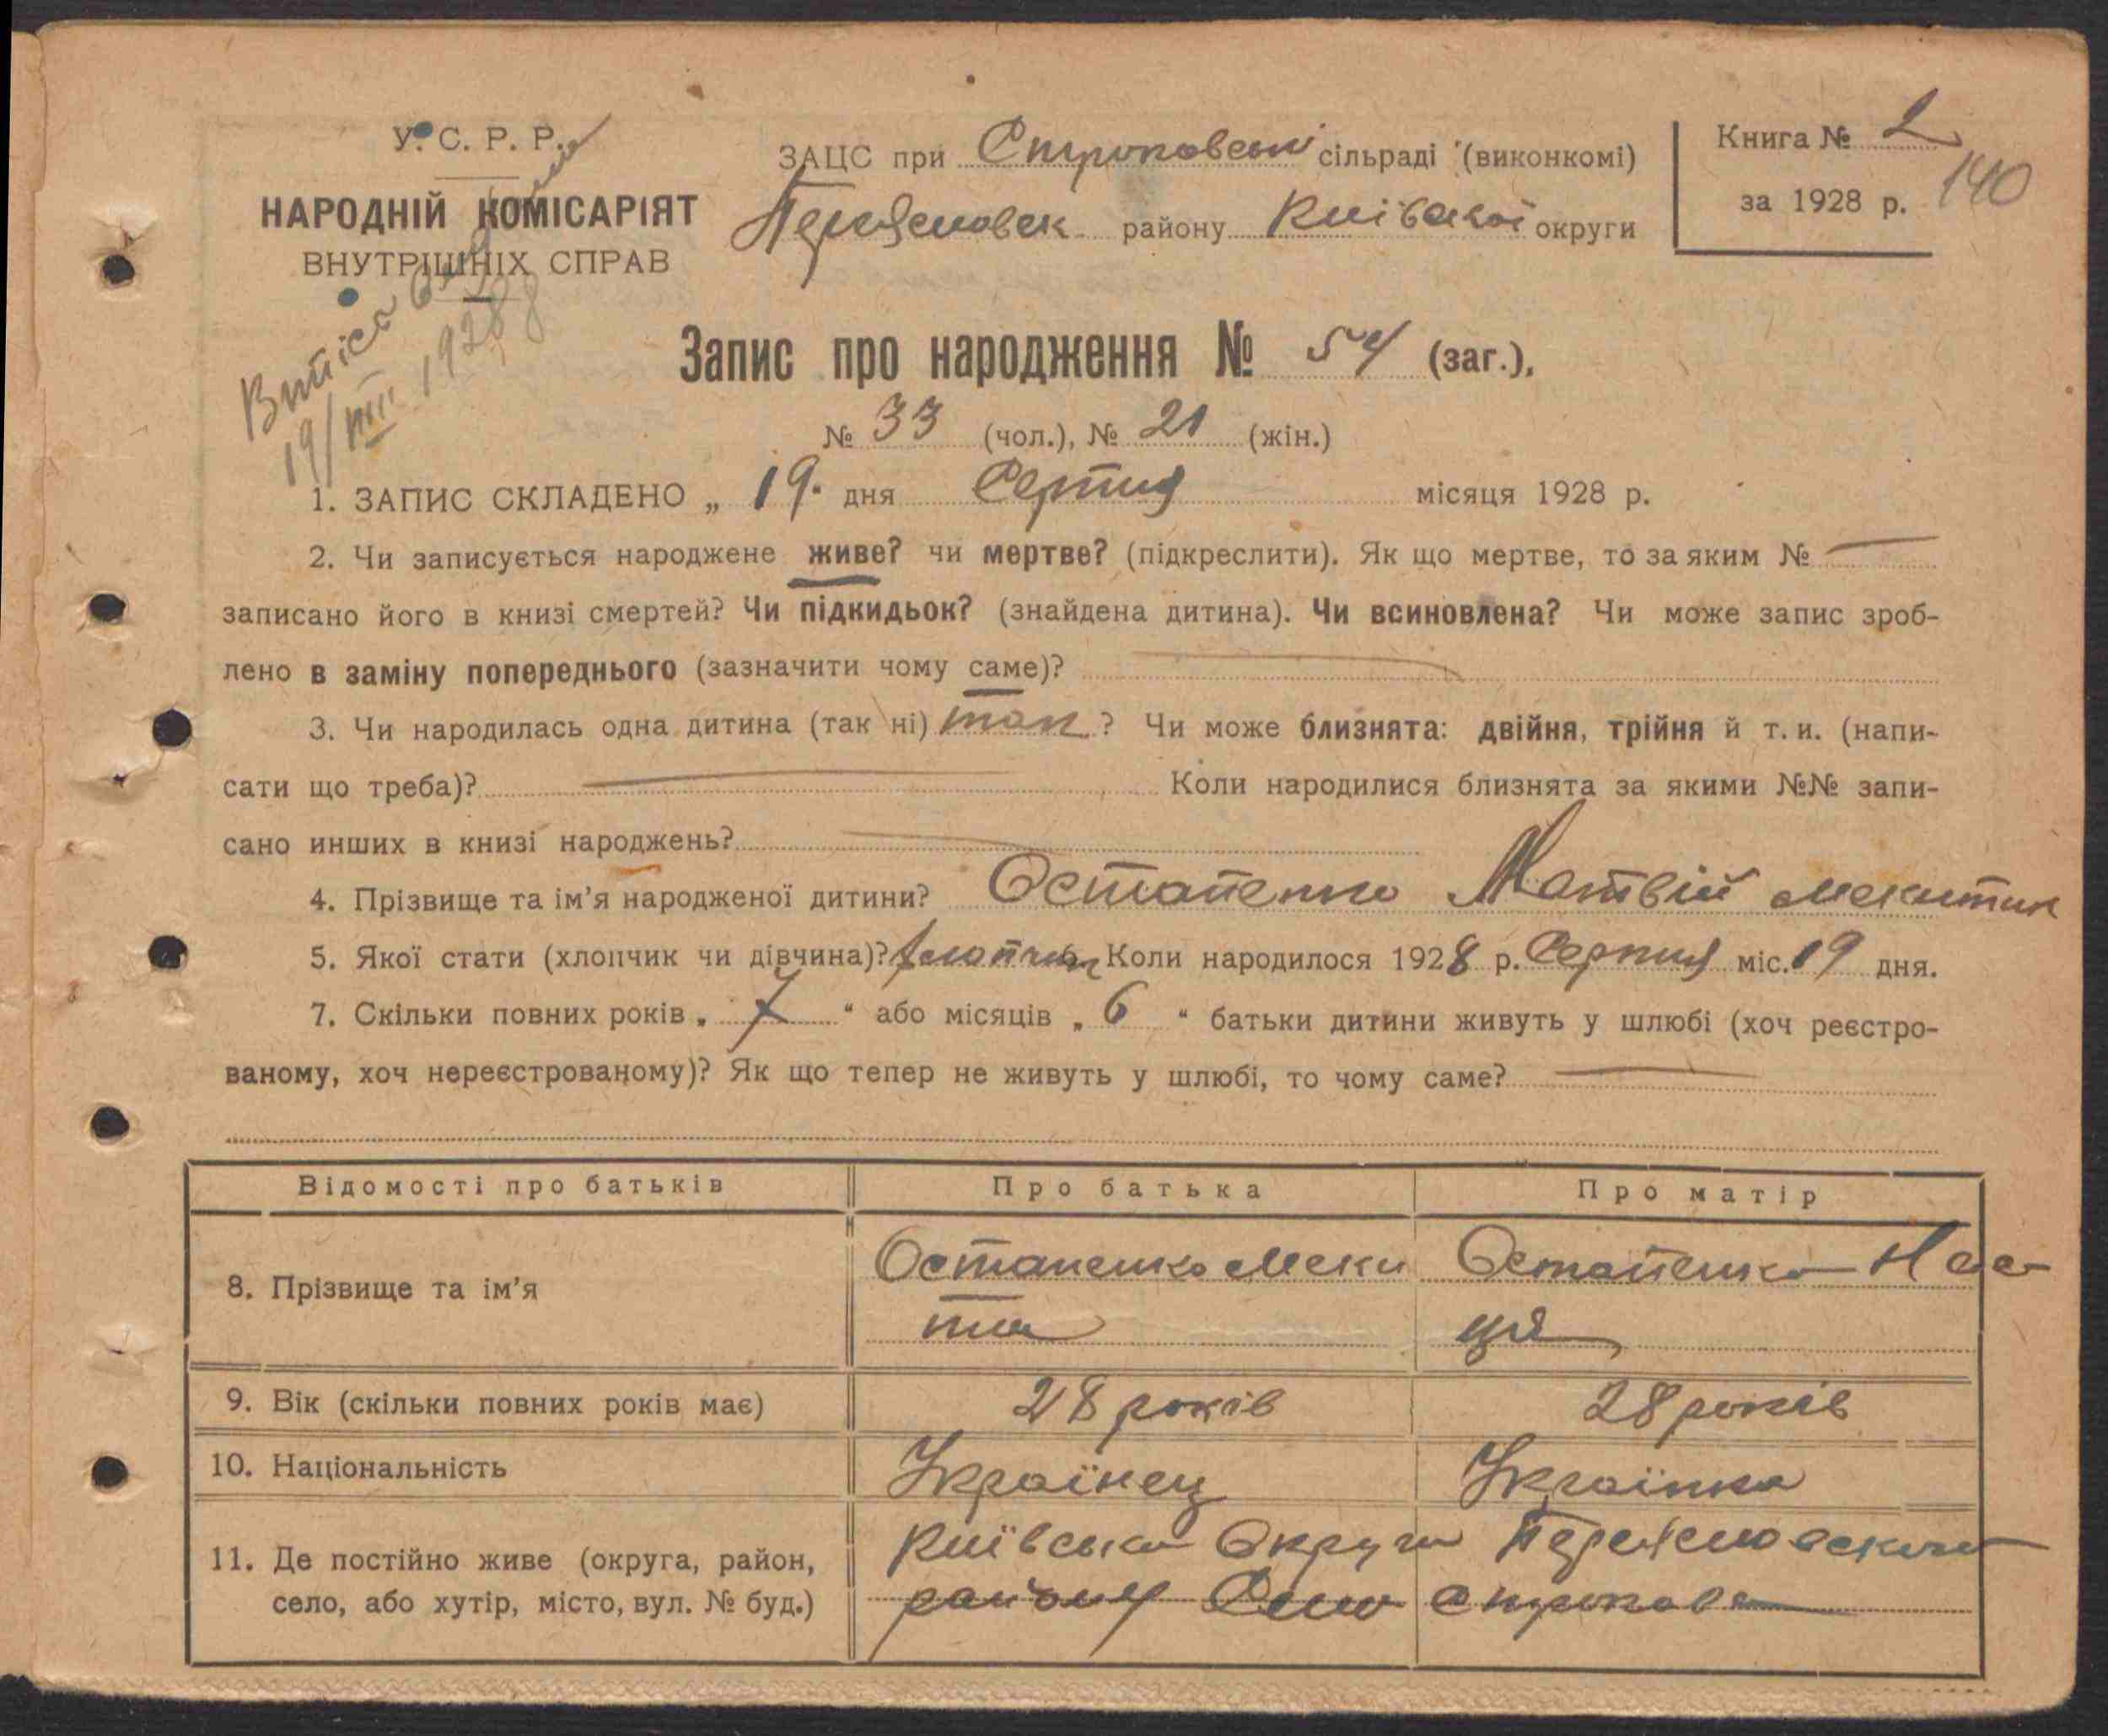 У. С. Р. Р.
НАРОДНІЙ КОМІСАРІЯТ
ВНУТРІШНІХ СПРАВ
ЗАЦС при Строковські сільраді (виконкомі)
Переяславск району Київської округи
Книга № 2
за 1928 р.
140
19/VIII 1928
Запис про народження № 54 (заг.),
№ 33 (чол.), № 21 (жін.)
1. ЗАПИС СКЛАДЕНО „ 19. дня Серпня місяця 1928 р.
2. Чи записується народжене живе? чи мертве? (підкреслити). Як що мертве, то за яким №
записано його в книзі смертей? Чи підкидьок? (знайдена дитина). Чи всиновлена? Чи може запис зроб-
лено в заміну попереднього (зазначити чому саме)?
3. Чи народилась одна дитина (так ні) так ? Чи може близнята: двійня, трійня й т. и. (напи-
сати що треба)? Коли народилися близнята за якими №№ запи-
сано инших в книзі народжень?
4. Прізвище та ім'я народженої дитини? Остапенко Матвій Мекитик
5. Якої стати (хлопчик чи дівчина)? хлопчик Коли народилося 1928 р. Серпня міс. 19 дня.
7. Скільки повних років „ 7 “ або місяців „ 6 “ батьки дитини живуть у шлюбі (хоч реєстро-
ваному, хоч нереєстрованому)? Як що тепер не живуть у шлюбі, то чому саме?
Відомості про батьків Про батька Про матір
8. Прізвище та ім'я Остапенко Меки Остапенко Нас
та ця
9. Вік (скільки повних років має) 28 років 28 років
10. Національність Українец Українка
11. Де постійно живе (округа, район, Київська Округа
село, або хутір, місто, вул. № буд.) району Село Строкова